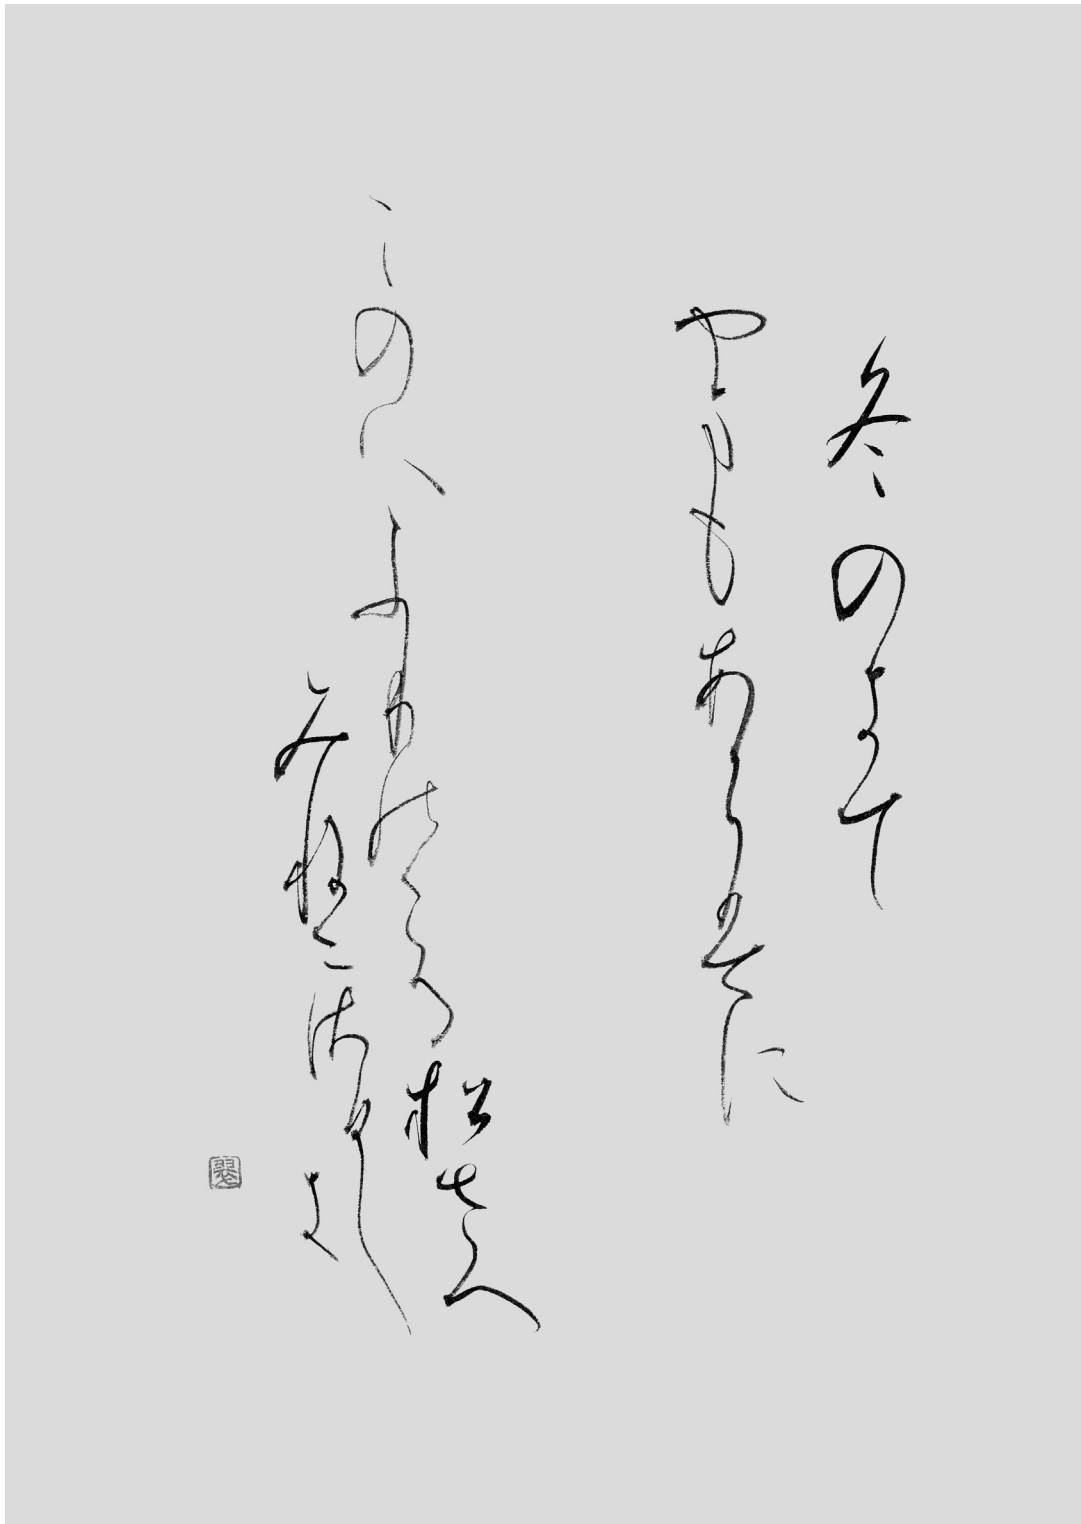 冬のきて
やまもあらはに
このはふりのこる松さへ
みねにさびしき